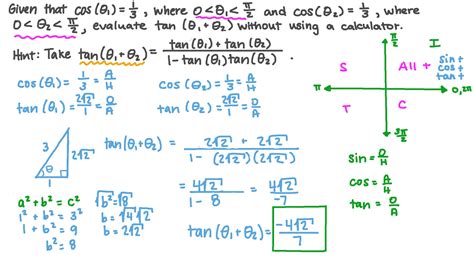 Given that cos(θ₁) = 1/3, where 0<θ₁<π/2 and cos(θ₂) = 1/3, where
0<θ₂<π/2, evaluate tan(θ₁+θ₂) without using a calculator.
Hint: Take tan(θ₁+θ₂) = (tan(θ₁)+tan(θ₂))/(1-tan(θ₁)tan(θ₂)).
cos(θ₁) = 1/3 = A/H
cos(θ₂) = 1/3 = A/H
tan(θ₁) = 2√2/1 = O/A
tan(θ₂) = 2√2/1 = O/A
3
2√2
θ
1
a² + b² = c²
1² + b² = 3²
1 + b² = 9
b² = 8
√b² = √8
b = √4√2
b = 2√2
tan(θ₁+θ₂) = (2√2 + 2√2)/(1-(2√2)(2√2))
= 4√2/(1-8) = 4√2/-7
tan(θ₁+θ₂) = -4√2/7
π/2
I
S
All +
sin+
cos+
tan+
π
0,2π
T
C
3π/2
sin = O/H
cos = A/H
tan = O/A